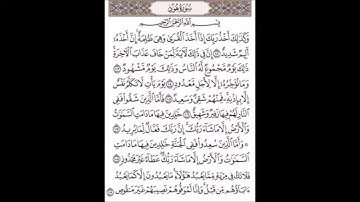 سُورَةُ هُودٍ
بِسْمِ ٱللَّهِ ٱلرَّحْمَٰنِ ٱلرَّحِيمِ
وَكَذَٰلِكَ أَخْذُ رَبِّكَ إِذَآ أَخَذَ ٱلْقُرَىٰ وَهِيَ ظَٰلِمَةٌ إِنَّ أَخْذَهُۥٓ
أَلِيمٌ شَدِيدٌ ١٠٢ إِنَّ فِي ذَٰلِكَ لَأٓيَةً لِّمَنْ خَافَ عَذَابَ ٱلْأٓخِرَةِ
ذَٰلِكَ يَوْمٌ مَّجْمُوعٌ لَّهُ ٱلنَّاسُ وَذَٰلِكَ يَوْمٌ مَّشْهُودٌ ١٠٣
وَمَا نُؤَخِّرُهُۥٓ إِلَّا لِأَجَلٍ مَّعْدُودٍ ١٠٤ يَوْمَ يَأْتِ لَا تَكَلَّمُ نَفْسٌ
إِلَّا بِإِذْنِهِۦ فَمِنْهُمْ شَقِيٌّ وَسَعِيدٌ ١٠٥ فَأَمَّا ٱلَّذِينَ شَقُوا۟ فَفِي
ٱلنَّارِ لَهُمْ فِيهَا زَفِيرٌ وَشَهِيقٌ ١٠٦ خَٰلِدِينَ فِيهَا مَا دَامَتِ ٱلسَّمَٰوَٰتُ
وَٱلْأَرْضُ إِلَّا مَا شَآءَ رَبُّكَ إِنَّ رَبَّكَ فَعَّالٌ لِّمَا يُرِيدُ ١٠٧
وَأَمَّا ٱلَّذِينَ سُعِدُوا۟ فَفِي ٱلْجَنَّةِ خَٰلِدِينَ فِيهَا مَا دَامَتِ
ٱلسَّمَٰوَٰتُ وَٱلْأَرْضُ إِلَّا مَا شَآءَ رَبُّكَ عَطَآءً غَيْرَ مَجْذُوذٍ ١٠٨
فَلَا تَكُ فِي مِرْيَةٍ مِّمَّا يَعْبُدُ هَٰٓؤُلَآءِ مَا يَعْبُدُونَ إِلَّا كَمَا يَعْبُدُ
ءَابَآؤُهُم مِّن قَبْلُ وَإِنَّا لَمُوَفُّوهُمْ نَصِيبَهُمْ غَيْرَ مَنقُوصٍ ١٠٩